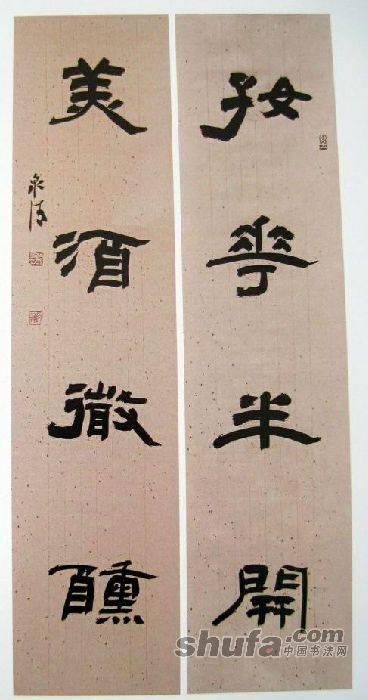 好花半開
美酒微醺
shufa.com
中国书法网